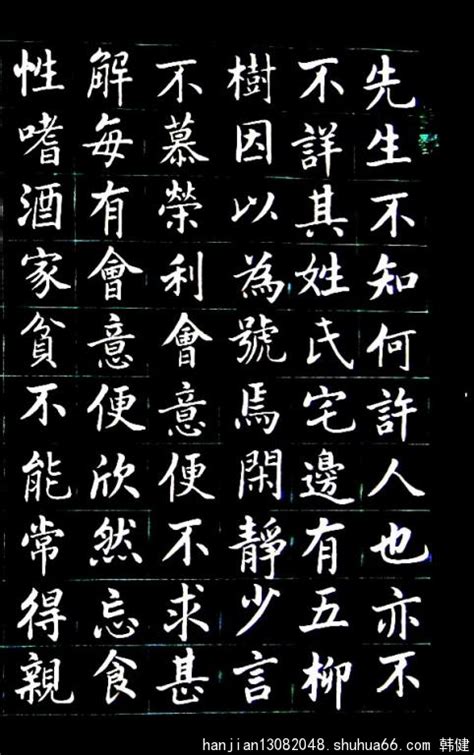 先生不知何許人也亦不
不詳其姓氏宅邊有五柳
樹因以為號焉閑靜少言
不慕榮利會意便不求甚
解每有會意便欣然忘食
性嗜酒家貧不能常得親
hanjian13082048.shuhua66.com 韩健